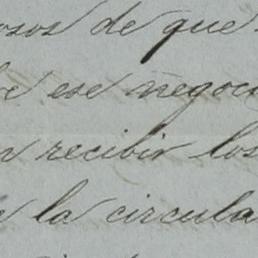 osos de que
de ese negoci
n recibir los
e la circula